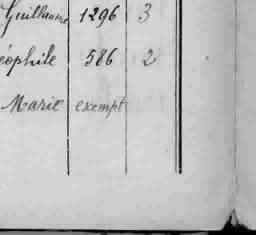 Guillaume 1296 3
éophile 586 2
Marie exempt